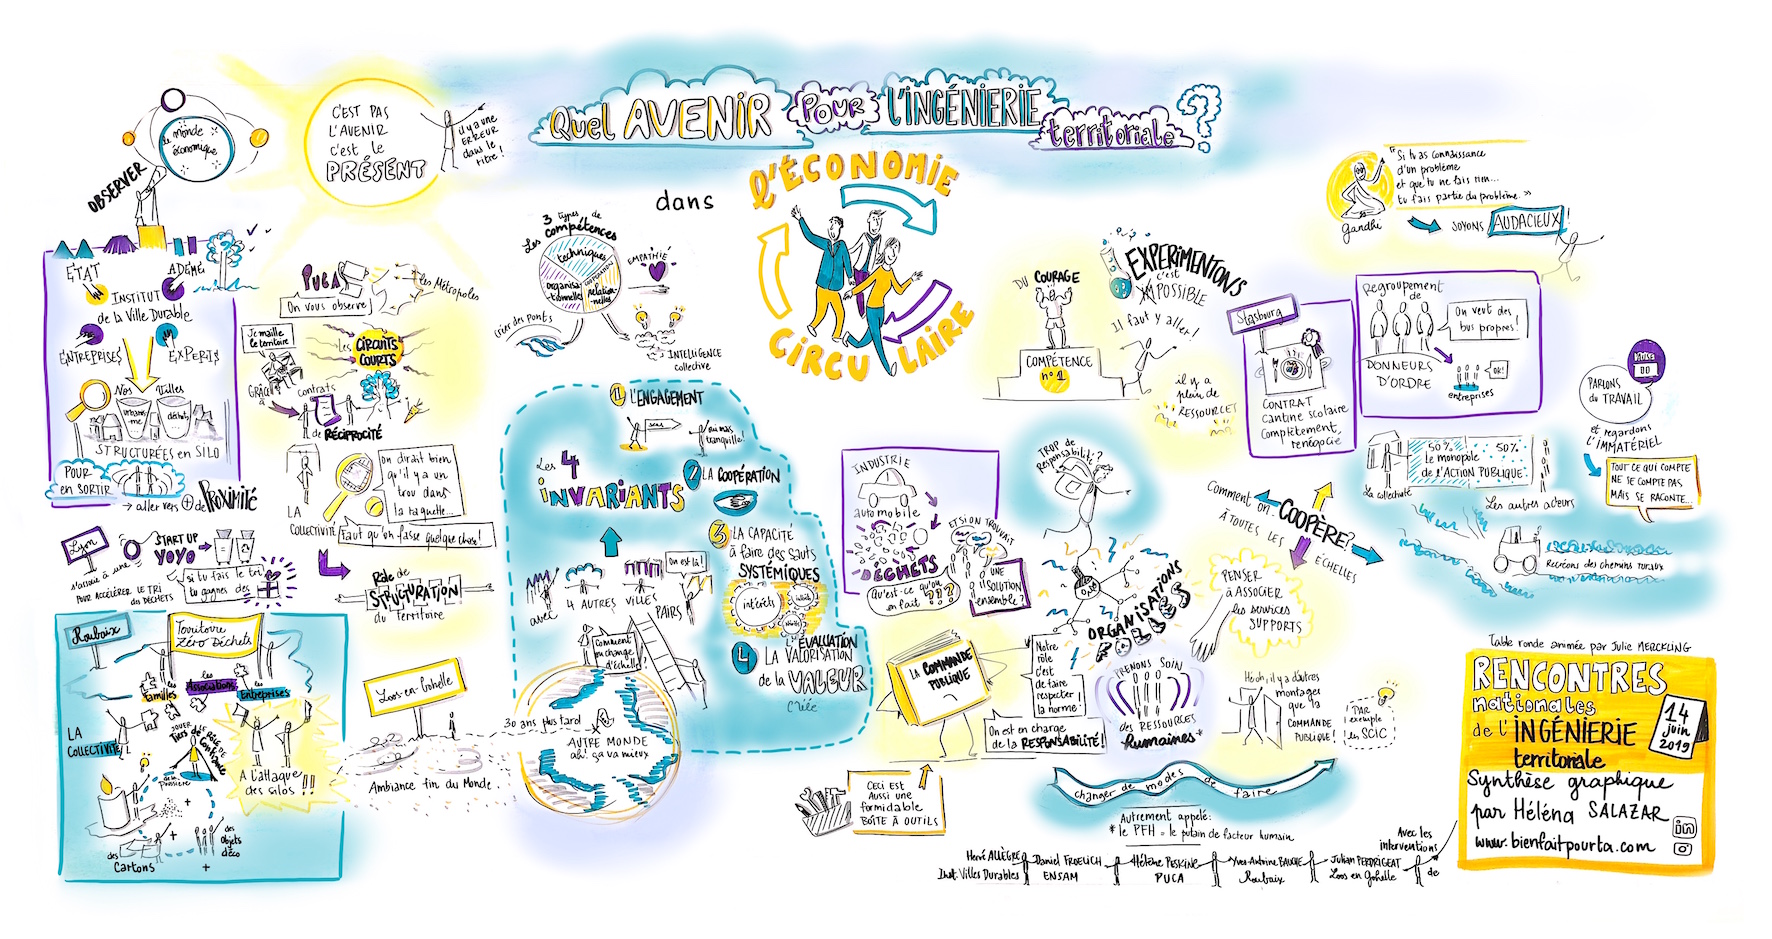 Quel AVENIR POUR L'INGÉNIERIE
territoriale ?
dans
L'ÉCONOMIE
CIRCULAIRE
C'EST PAS
L'AVENIR
C'est le
PRÉSENT
il y a une
ERREUR
dans le
titre !
monde
économique
OBSERVER
ÉTAT
ADEME
INSTITUT
de la Ville Durable
ENTREPRISES
EXPERTS
Nos Villes
déchets
STRUCTURÉES en SILO
POUR
en SORTIR
→ aller vers + de PROXIMITÉ
PUCA
On vous observe
les Métropoles
Je maille
le territoire
Les CIRCUITS
COURTS
GRÂCE
à
contrats
de RÉCIPROCITÉ
LA
COLLECTIVITÉ
on dirait bien
qu'il y a un
trou dans
la raquette...
faut qu'on fasse quelque chose !
Rôle de
STRUCTURATION
du Territoire
Lyon
START UP
YOYO
s'associe à une
POUR ACCÉLÉRER LE TRI
des DÉCHETS
si tu fais le tri
tu gagnes des
Roubaix
Territoire
Zéro Déchets
les
familles
les
Associations
les
Entreprises
LA
COLLECTIVITÉ
JOUER LE RÔLE DE
Tiers de Confiance
A l'attaque
des silos !!!
de la
poussière
+
+
des
Cartons
des
Objets
déco
+
Loos-en-Gohelle
30 ans plus tard
Ambiance fin du Monde.
AUTRE MONDE
ah! ça va mieux
Les 3 types de
compétences
techniques
organisa-
-tionnelles
relation-
-nelles
EMPATHIE
créer des ponts
INTELLIGENCE
collective
Les 4
INVARIANTS
1 L'ENGAGEMENT
sens
tranquille !
2 LA COOPÉRATION
3 LA CAPACITÉ
à faire des sauts
SYSTÉMIQUES
intérêts
intérêts
intérêts
4 L'ÉVALUATION
LA VALORISATION
de la VALEUR
créée
avec
4 AUTRES VILLES
PAIRS
On est là !
Comment
on change
d'échelle ?
DU COURAGE
COMPÉTENCE
n°1
EXPERIMENTONS
c'est
POSSIBLE
Il faut y aller !
il y a
plein de
RESSOURCES
"Si tu as connaissance
d'un problème
et que tu ne fais rien...
tu fais partie du problème."
Gandhi
SOYONS AUDACIEUX !
Strasbourg
CONTRAT
cantine scolaire
Complètement
renégocié
Regroupement
de
DONNEURS
D'ORDRE
On veut des
bus propres !
OK!
entreprises
PARLONS
du TRAVAIL
et regardons
L'IMMATÉRIEL
TOUT CE QUI COMPTE
NE SE COMPTE PAS
MAIS SE RACONTE...
50% 50%
le monopole
de l'ACTION PUBLIQUE
La collectivité
Les autres acteurs
Recréons des chemins ruraux
Comment on COOPÈRE ?
À TOUTES LES ÉCHELLES
INDUSTRIE
automobile
DÉCHETS
Qu'est-ce qu'on
en fait ???
ET SI ON TROUVAIT
UNE
SOLUTION
ensemble ?
TROP de
RESPONSABILITÉ ?
ORGANISATIONS
PENSER
à ASSOCIER
les services
SUPPORTS
LA COMMANDE
PUBLIQUE
Notre
rôle
c'est
de faire
respecter
la norme !
On est en charge
de la RESPONSABILITÉ !
CECI EST
AUSSI UNE
formidable
BOÎTE À OUTILS
PRENONS SOIN
des RESSOURCES
Humaines*
Hé oh, il y a d'autres
montages
que la
COMMANDE
PUBLIQUE !
PAR
exemple
en SCIC
changer de modes de faire
Autrement appelé :
* le PFH = le putain de facteur humain
Avec les
interventions
de
Hervé ALLÈGRE
Inst. Villes Durables
Daniel FROELICH
ENSAM
Hélène PESKINE
PUCA
Yves-Antoine BAUCHE
Roubaix
Julian PERDRIGEAT
Loos en Gohelle
Table ronde animée par Julie MERCKLING
RENCONTRES
nationales
de l'INGÉNIERIE
territoriale
14
juin
2019
Synthèse graphique
par Héléna SALAZAR
www.bienfaitpourta.com
in